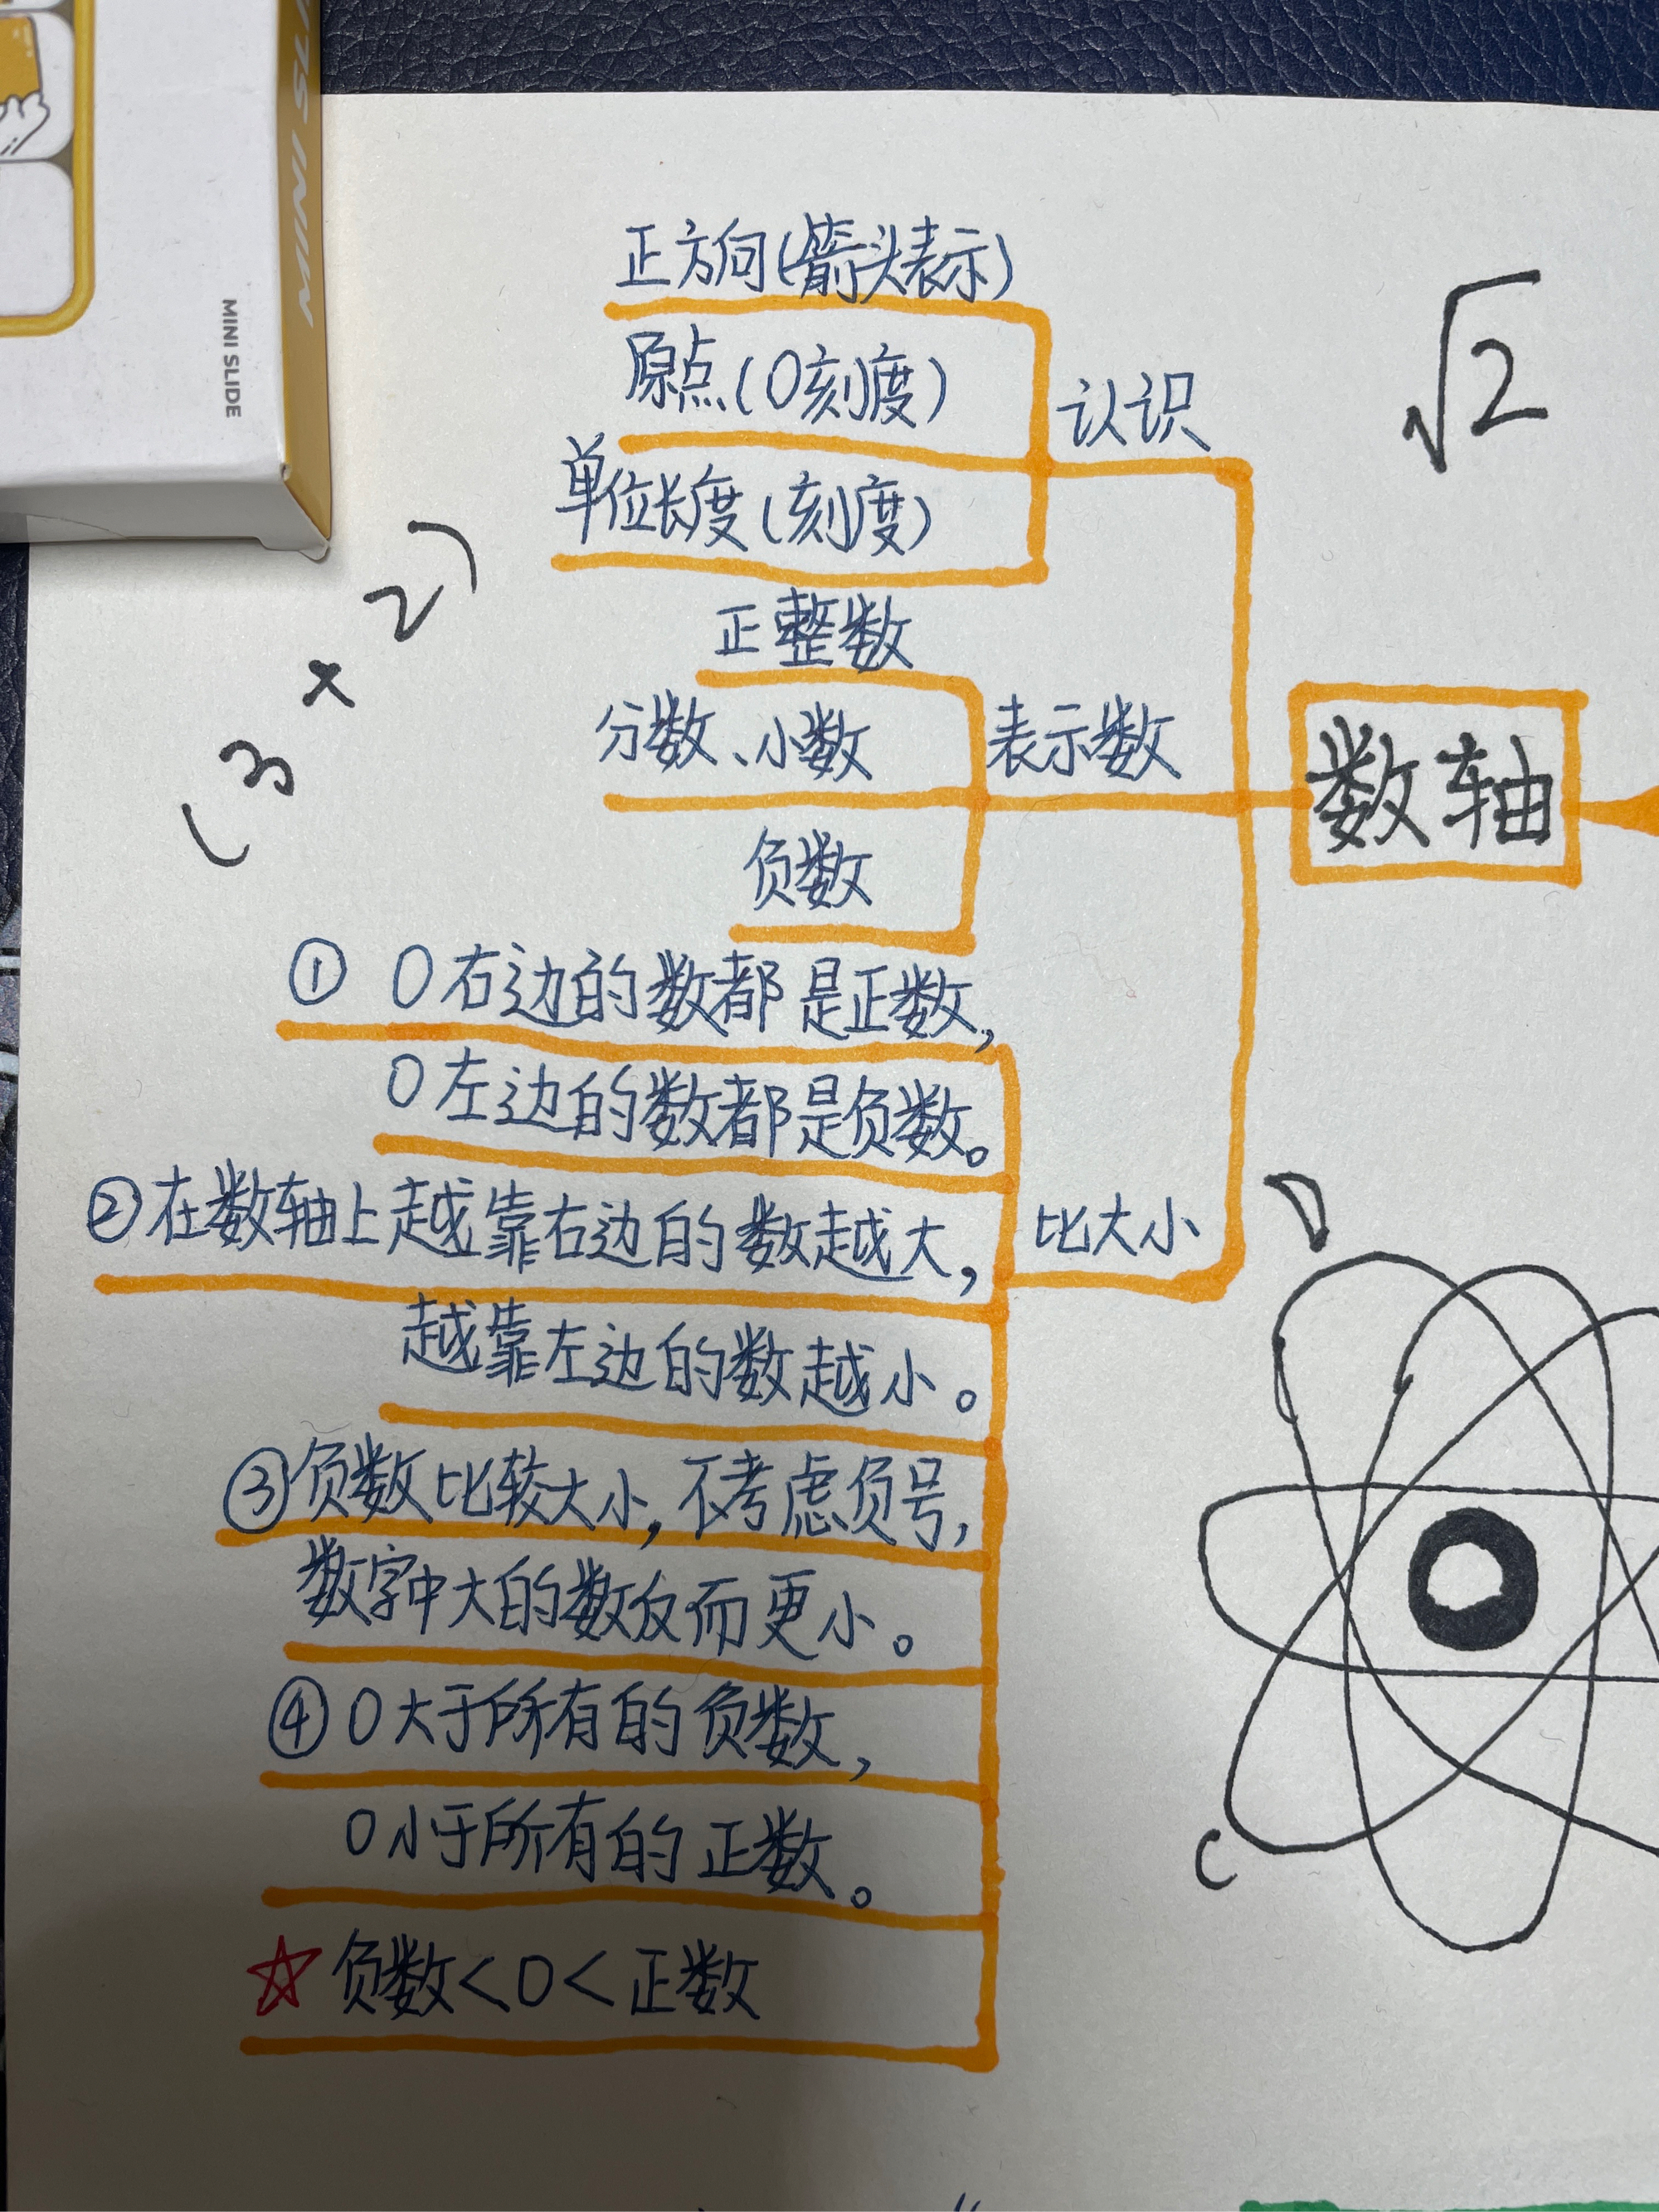 MINI SLIDE
MINI SL
正方向(箭头表示)
原点(0刻度)
认识
单位长度(刻度)
√2
(3×2)
正整数
分数、小数
表示数
负数
数轴
① 0右边的数都是正数,
0左边的数都是负数。
②在数轴上越靠右边的数越大,
比大小
越靠左边的数越小。
③负数比较大小,不考虑负号,
数字中大的数反而更小。
④0大于所有的负数,
0小于所有的正数。
☆负数<0<正数